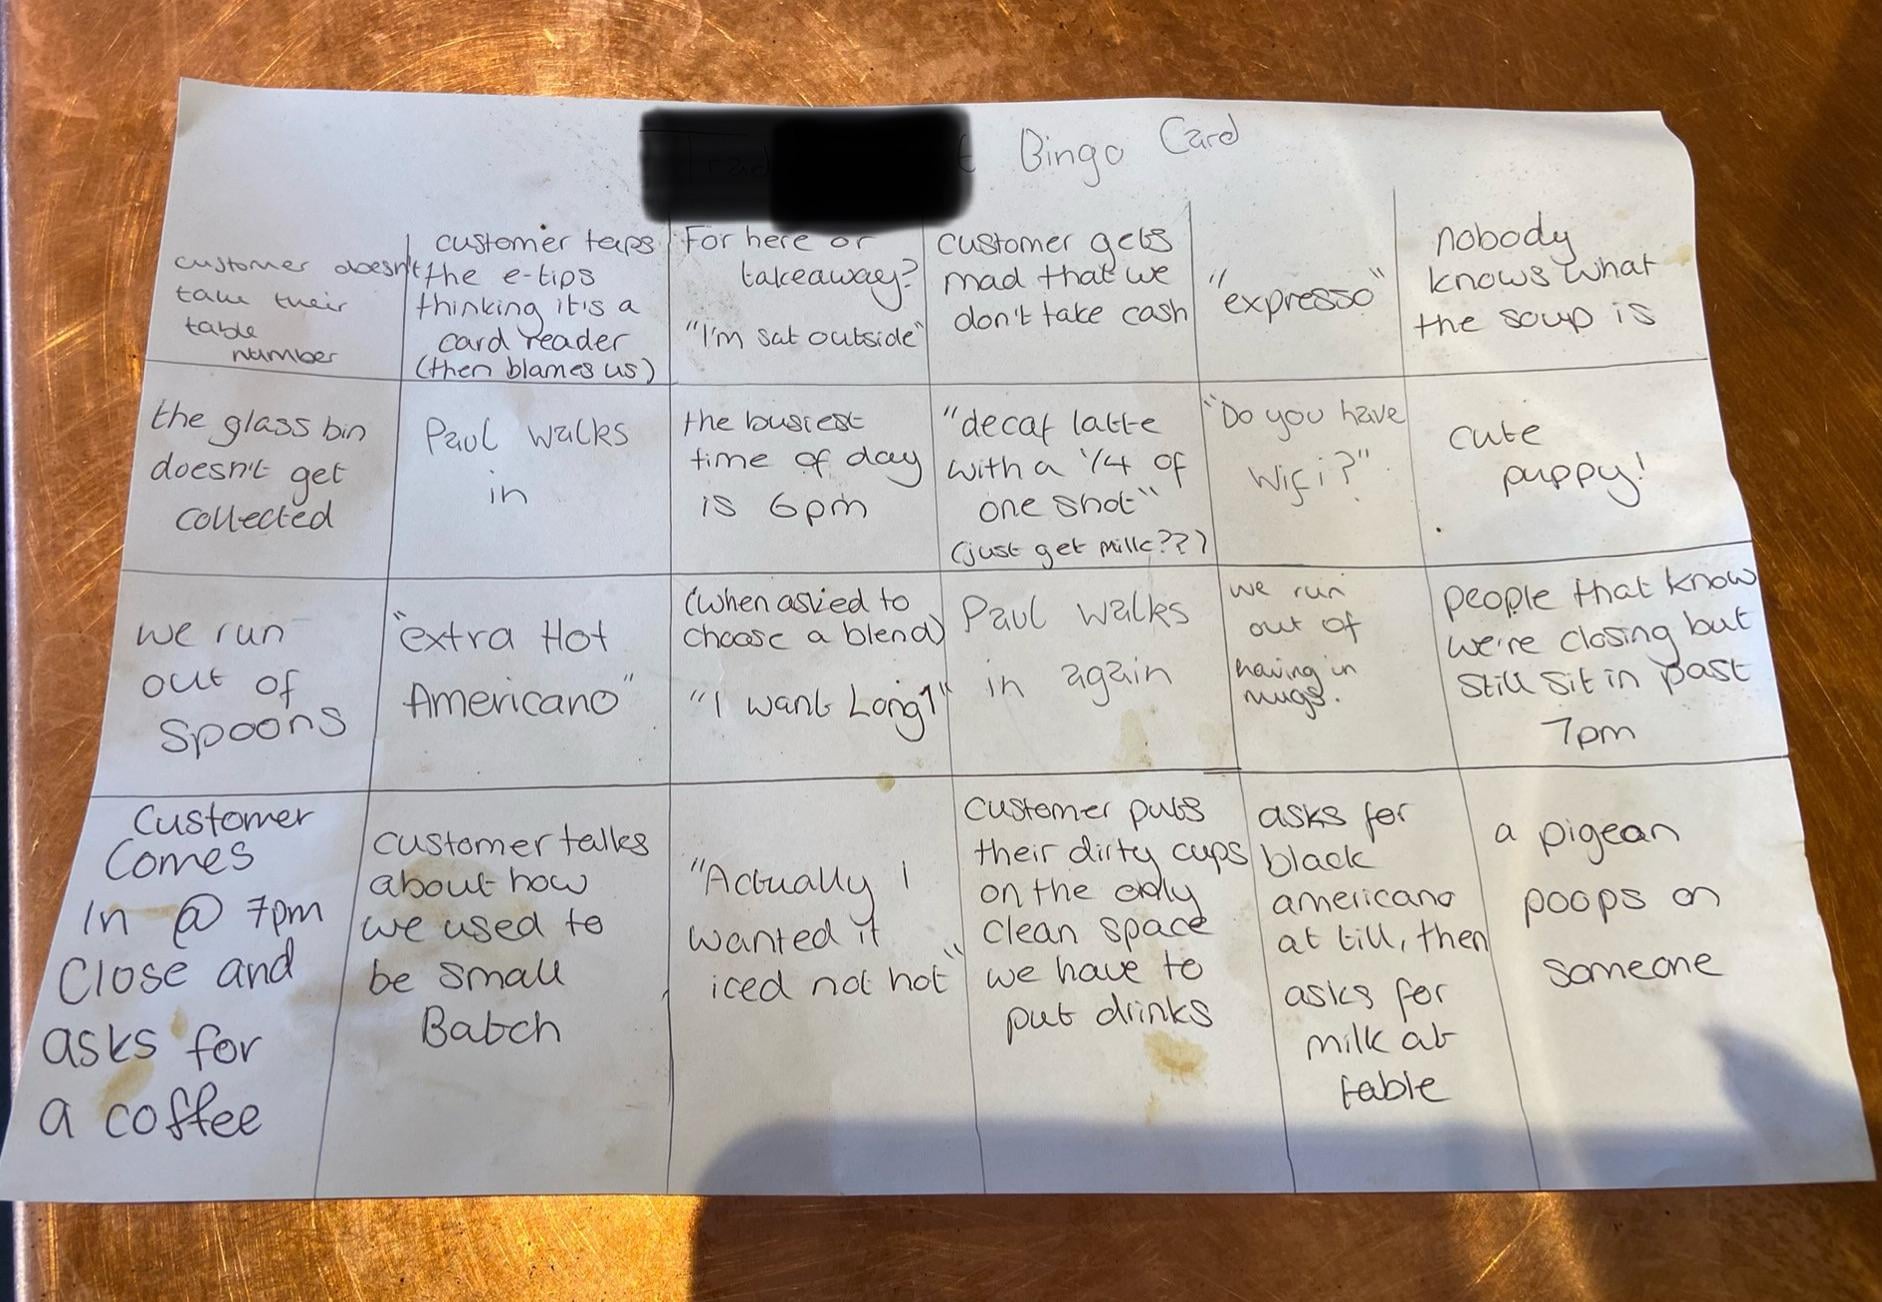 Bingo Card
customer doesn't
take their
table
number
customer taps
the e-tips
thinking it's a
card reader
(then blames us)
For here or
takeaway?
"I'm sat outside"
customer gets
mad that we
don't take cash
"expresso"
nobody
knows what
the soup is
the glass bin
doesn't get
collected
Paul walks
in
the busiest
time of day
is 6pm
"decaf latte
with a 1/4 of
one shot"
(just get milk???)
"Do you have
Wifi?"
cute
puppy!
we run
out of
spoons
"extra Hot
Americano"
(when asked to
choose a blend)
"I want Long"
Paul walks
in again
we run
out of
having in
mugs.
people that know
we're closing but
still sit in past
7pm
Customer
Comes
In @ 7pm
Close and
asks for
a coffee
customer talks
about how
we used to
be small
Batch
"Actually I
wanted it
iced not hot"
customer puts
their dirty cups
on the only
clean space
we have to
put drinks
asks for
black
americano
at till, then
asks for
milk at
table
a pigean
poops on
someone